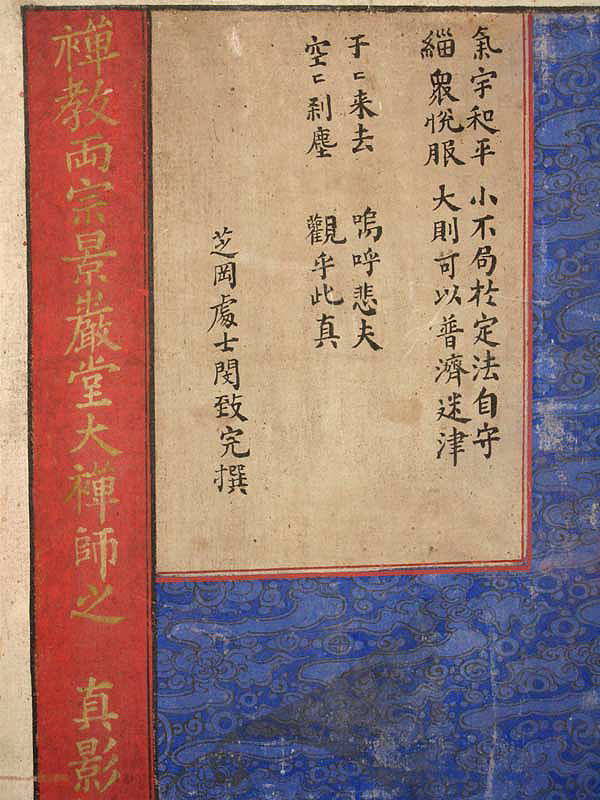 氣宇和平 小不局扵定法自守
緇衆悅服 大則可以普濟迷津
于〻来去 嗚呼悲夫
空〻刹塵 觀乎此真
芝岡處士閔致完撰
禪教両宗景巖堂大禪師之 真影